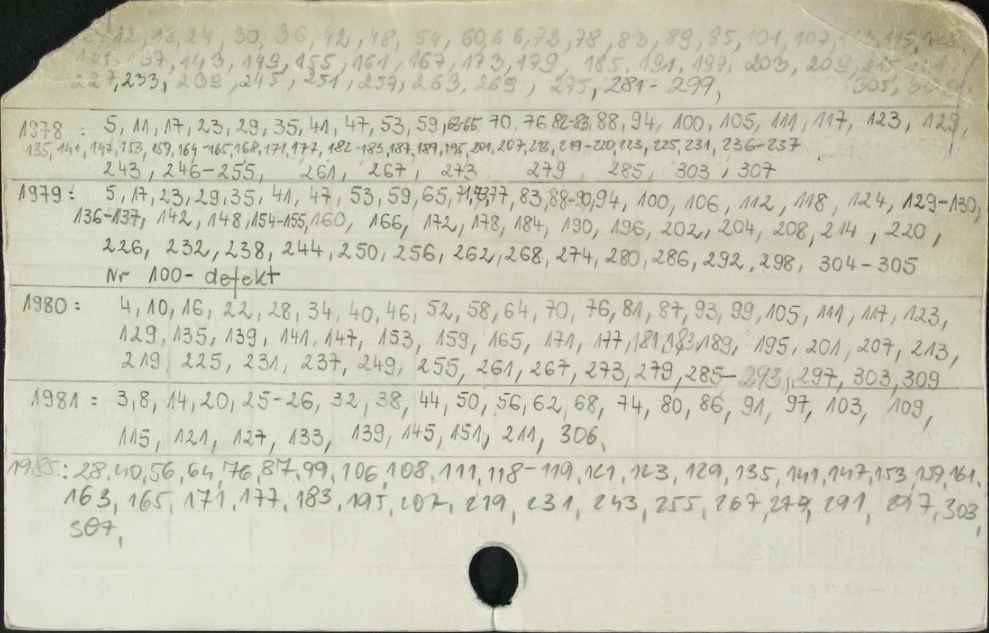 12, 18, 24, 30, 36, 42, 48, 54, 60, 66, 72, 78, 83, 89, 95, 101, 107,
137, 143, 149, 155, 161, 167, 173, 179, 185, 191, 197, 203, 209,
227, 233, 239, 245, 251, 257, 263, 269, 275, 281-299, 305,
1978: 5, 11, 17, 23, 29, 35, 41, 47, 53, 59, 70, 76, 82-83, 88, 94, 100, 105, 111, 117, 123, 129,
135, 141, 147, 153, 159, 164-165, 168, 171, 177, 182-183, 187, 189, 195, 201, 207, 213, 219-220, 223, 225, 231, 236-237
243, 246-255, 261, 267, 273 279 285, 303, 307
1979: 5, 17, 23, 29, 35, 41, 47, 53, 59, 65, 77, 83, 88-90, 94, 100, 106, 112, 118, 124, 129-130,
136-137, 142, 148, 154-155, 160, 166, 172, 178, 184, 190, 196, 202, 204, 208, 214, 220,
226, 232, 238, 244, 250, 256, 262, 268, 274, 280, 286, 292, 298, 304-305
Nr 100- defekt
1980: 4, 10, 16, 22, 28, 34, 40, 46, 52, 58, 64, 70, 76, 81, 87, 93, 99, 105, 111, 117, 123,
129, 135, 139, 141, 147, 153, 159, 165, 171, 177, 181, 183, 189, 195, 201, 207, 213,
219, 225, 231, 237, 249, 255, 261, 267, 273, 279, 285-293, 297, 303, 309
1981: 3, 8, 14, 20, 25-26, 32, 38, 44, 50, 56, 62, 68, 74, 80, 86, 91, 97, 103, 109,
115, 121, 127, 133, 139, 145, 151, 211, 306,
1985: 28, 40, 56, 64, 76, 87, 99, 106, 108, 111, 118-119, 121, 123, 129, 135, 141, 147, 153, 159, 161,
163, 165, 171, 177, 183, 195, 207, 219, 231, 243, 255, 267, 279, 291, 297, 303,
307,